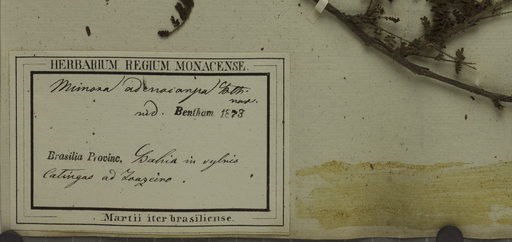 HERBARIUM REGIUM MONACENSE.
Mimosa adenocarpa Bth.
var.
vid. Bentham 1873
Brasilia Provinc. Bahia in sylvis
Catingas ad Joazeiro.
Martii iter brasiliense.